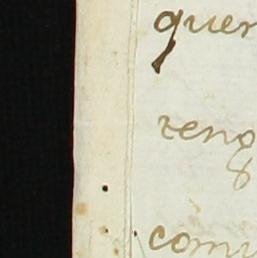 quer
reng
comu